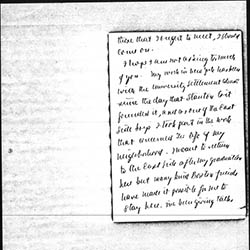 there that I ought to meet, I should
come on.
I hope I am not asking too much
of you. My work in New York has been
with the University Settlement
since the day that Stanton Coit
founded it, and as one of the East
Side boys I took part in the work
that concerned the life of my
neighborhood. I meant to return
to the East Side after my graduation
here but many kind Boston friends
have made it possible for me to
stay here. I've been giving talks